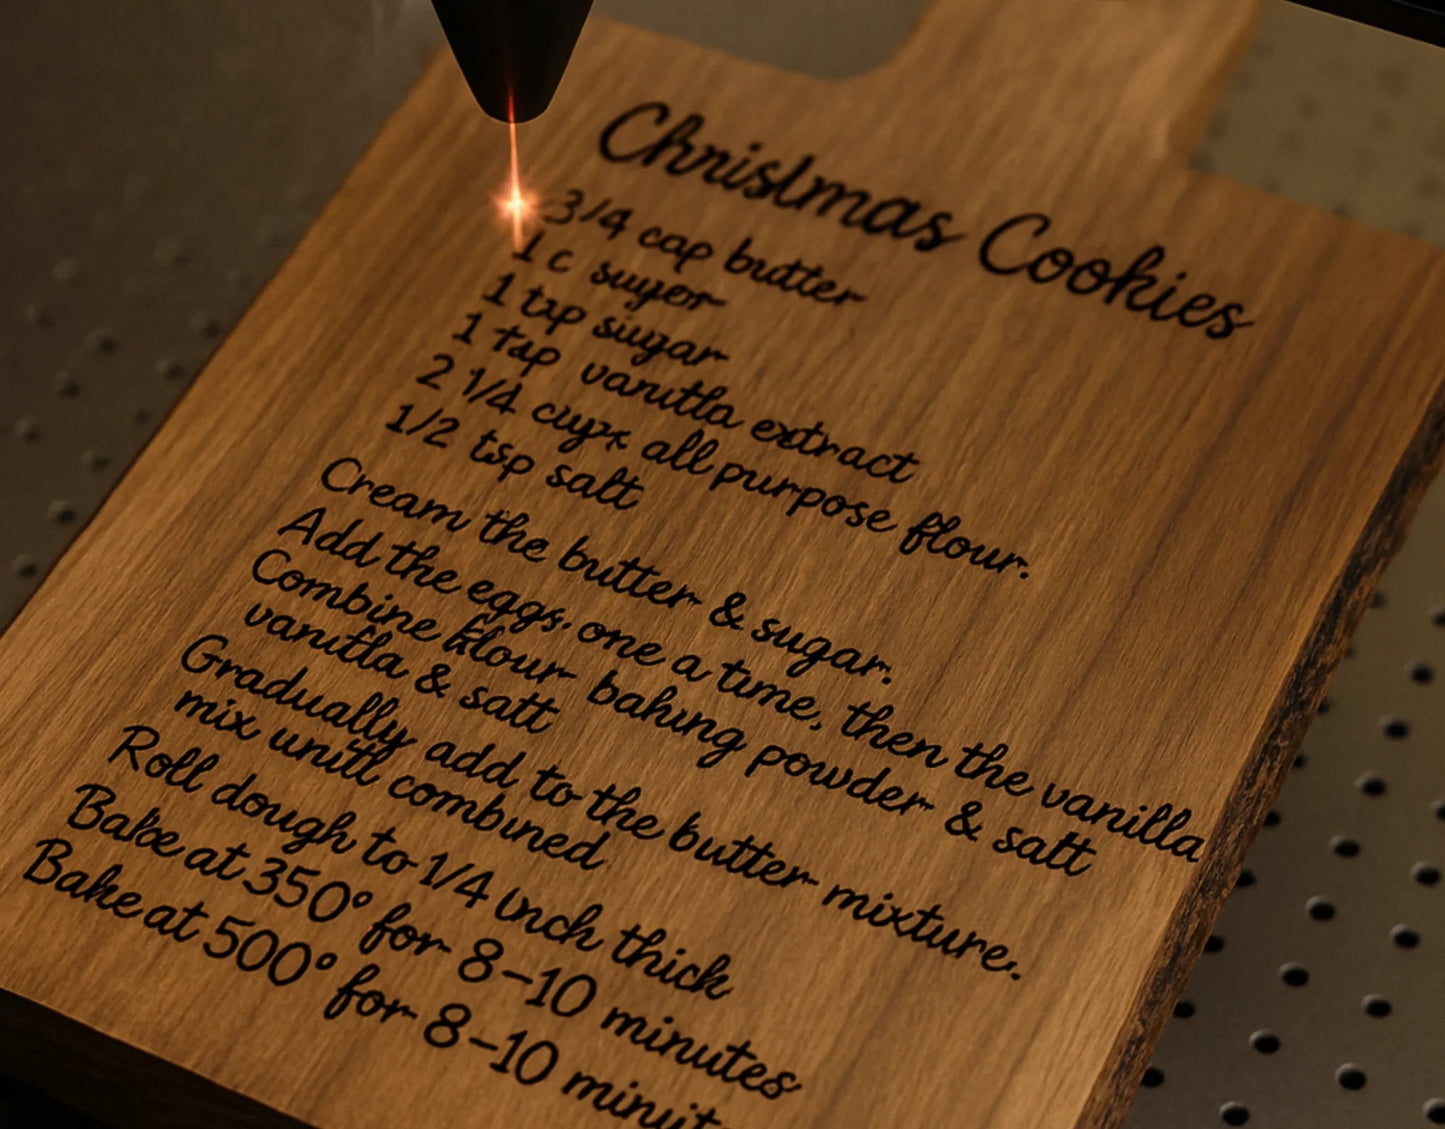 Christmas Cookies
3/4 cap butter
1 c suger
1 tsp sugar
1 tsp vanitla extract
2 1/4 cups all purpose flour.
1/2 tsp salt
Cream the butter & sugar.
Add the eggs, one a time, then the vanilla
Combine flour baking powder & satt
vanitla & satt
Gradually add to the butter mixture.
mix unitl combined
Roll dough to 1/4 inch thick
Bake at 350° for 8-10 minutes
Bake at 500° for 8-10 minut